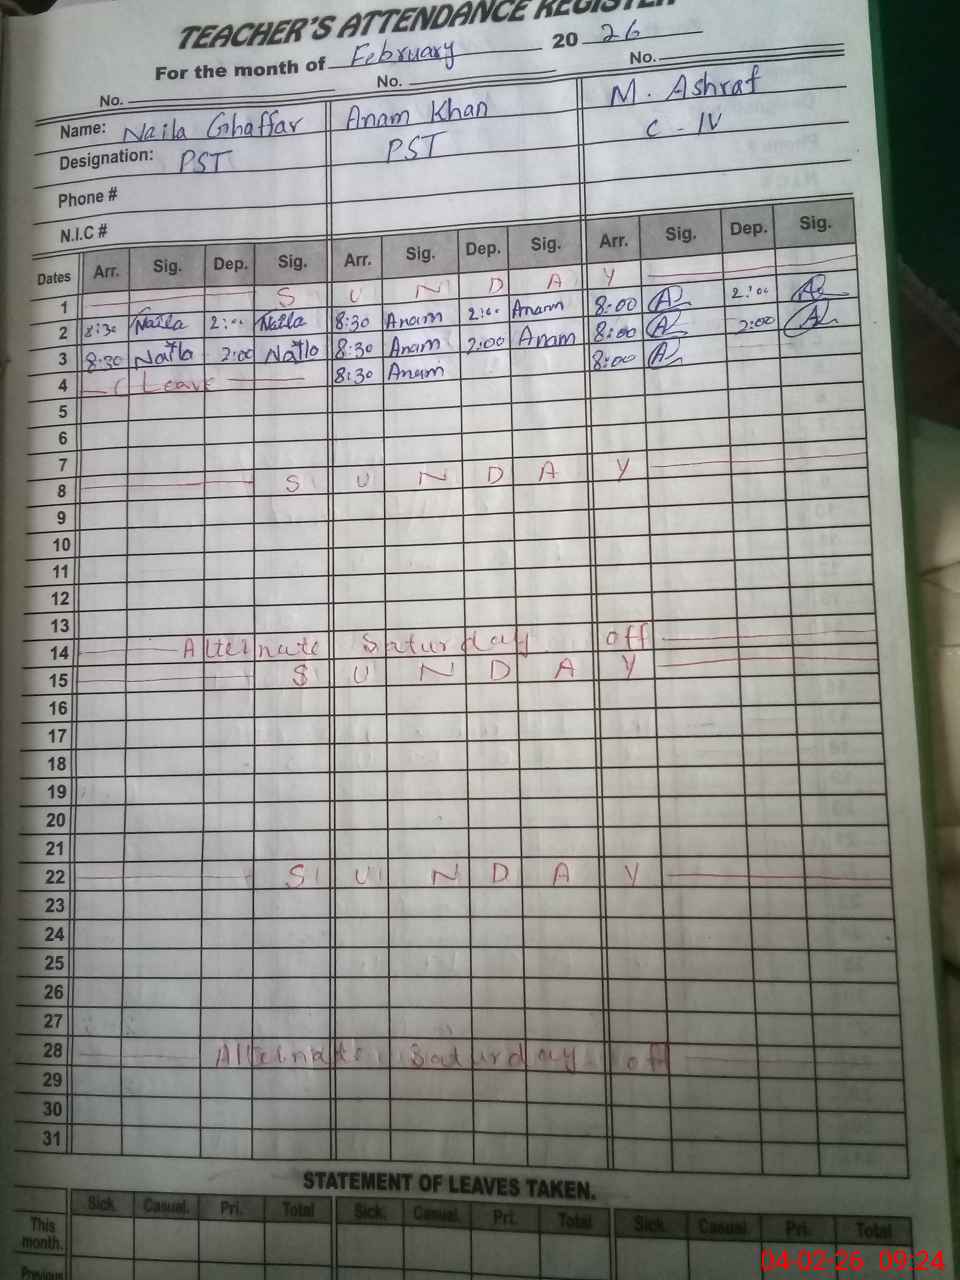 TEACHER'S ATTENDANCE REGISTER
For the month of February 20 26
No. No. No.
Name: Naila Ghaffar Anam Khan M. Ashraf
Designation: PST PST C - IV
Phone #
N.I.C #
Dates Arr. Sig. Dep. Sig. Arr. Sig. Dep. Sig. Arr. Sig. Dep. Sig.
1 S U N D A Y
2 8:30 Naila 2:00 Naila 8:30 Anam 2:00 Anam 8:00 2:00
3 8:30 Naila 2:00 Naila 8:30 Anam 2:00 Anam 8:00 2:00
4 Leave 8:30 Anam 8:00
5
6
7
8 S U N D A Y
9
10
11
12
13
14 Alternate Saturday off
15 S U N D A Y
16
17
18
19
20
21
22 S U N D A Y
23
24
25
26
27
28 Alternate Saturday off
29
30
31
STATEMENT OF LEAVES TAKEN.
Sick. Casual. Pri. Total Sick. Casual. Pri. Total Sick. Casual. Pri. Total
This month.
Previous
04-02-26 09:24